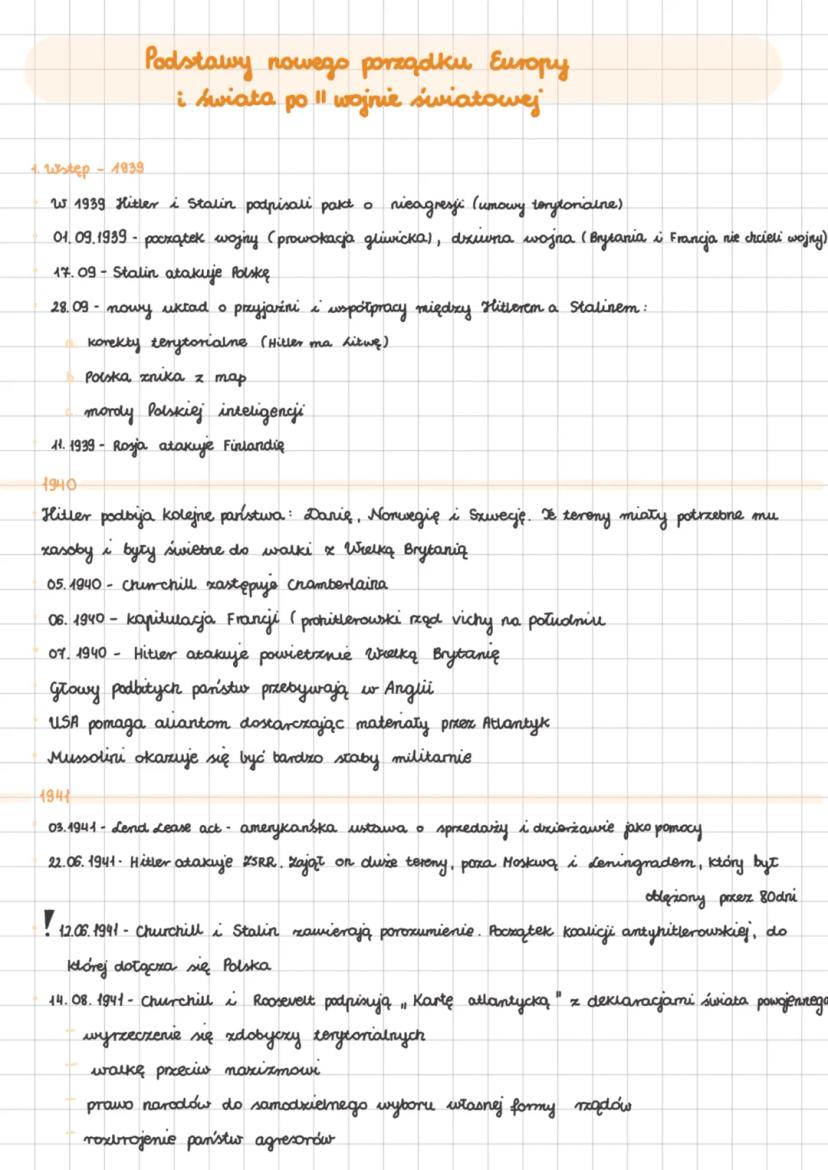 Podstawy nowego porządku Europy
i świata po II wojnie światowej
1. Wstęp - 1939
W 1939 Hitler i Stalin podpisali pakt o nieagresji (umowy terytorialne)
01.09.1939 - początek wojny (prowokacja gliwicka), dziwna wojna (Brytania i Francja nie chcieli wojny)
17.09 - Stalin atakuje Polskę
28.09 - nowy układ o przyjaźni i współpracy między Hitlerem a Stalinem:
a. korekty terytorialne (Hitler ma Litwę)
b. Polska znika z map
c. mordy Polskiej inteligencji
11.1939 - Rosja atakuje Finlandię
1940
Hitler podbija kolejne państwa: Danię, Norwegię i Szwecję. Te tereny miały potrzebne mu
zasoby i były świetne do walki z Wielką Brytanią
05.1940 - Churchill zastępuje Chamberlaina
06.1940 - kapitulacja Francji (prohitlerowski rząd vichy na południu
07.1940 - Hitler atakuje powietrznie Wielką Brytanię
Głowy podbitych państw przebywają w Anglii
USA pomaga aliantom dostarczając materiały przez Atlantyk
Mussolini okazuje się być bardzo słaby militarnie
1941
03.1941 - Lend Lease act - amerykańska ustawa o sprzedaży i dzierżawie jako pomocy
22.06.1941 - Hitler atakuje ZSRR. Zajął on duże tereny, poza Moskwą i Leningradem, który był
oblężony przez 80dni
! 12.06.1941 - Churchill i Stalin zawierają porozumienie. Początek koalicji antyhitlerowskiej, do
której dołącza się Polska
14.08.1941 - Churchill i Roosevelt podpisują „Kartę atlantycką" z deklaracjami świata powojennego
- wyrzeczenie się zdobyczy terytorialnych
- walkę przeciw nazizmowi
- prawo narodów do samodzielnego wyboru własnej formy rządów
- rozbrojenie państw agresorów